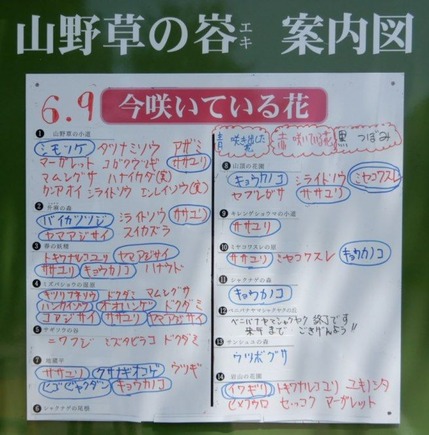 山野草の峪 エキ 案内図
6.9 今咲いている花
1 山野草の小道
シモツケ タツナミソウ アザミ
マーガレット コゴメウツギ ササユリ
マムシグサ ハナイカダ(実)
カンアオイ シライトソウ エンレイソウ(実)
2
バイカツツジ シライトソウ ササユリ
ヤマアジサイ スイカズラ
3 春の妖精
トキワナルコユリ ヤマアジサイ
ササユリ キョウカノコ ハナウド
4 ミズバショウの湿原
キツリフネソウ ドクダミ マムシグサ
ハンカイソウ オオハンゲ ドクダミ
コアジサイ ササユリ ヤマアジサイ
5 サギソウの谷
ニワフジ ミズタビラコ ドクダミ
7 地蔵平
ササユリ クサナギオゴケ ウツギ
ヒゴビャクダン キョウカノコ
6 シャクナゲの尾根
青 咲き出した花 赤 咲いている花 黒 つぼみ
8 山国の花園
キョウカノコ シライトソウ ミヤコワスレ
ヤブレガサ ササユリ
9 キレンゲショウマの小道
ササユリ
10 ミヤコワスレの屋
ササユリ ミヤコワスレ キョウカノコ
11 シャクナゲの森
キョウカノコ
12 ベニバナヤマシャクヤクの丘
ベニバナヤマシャクヤク 終了です
来年まで ごきげんよう!!
13 サンシュユの森
ウツボグサ
14 岩山の花園
イワギリ トキワナルコユリ ユキノシタ
ヒメフウロ セッコク マーガレット